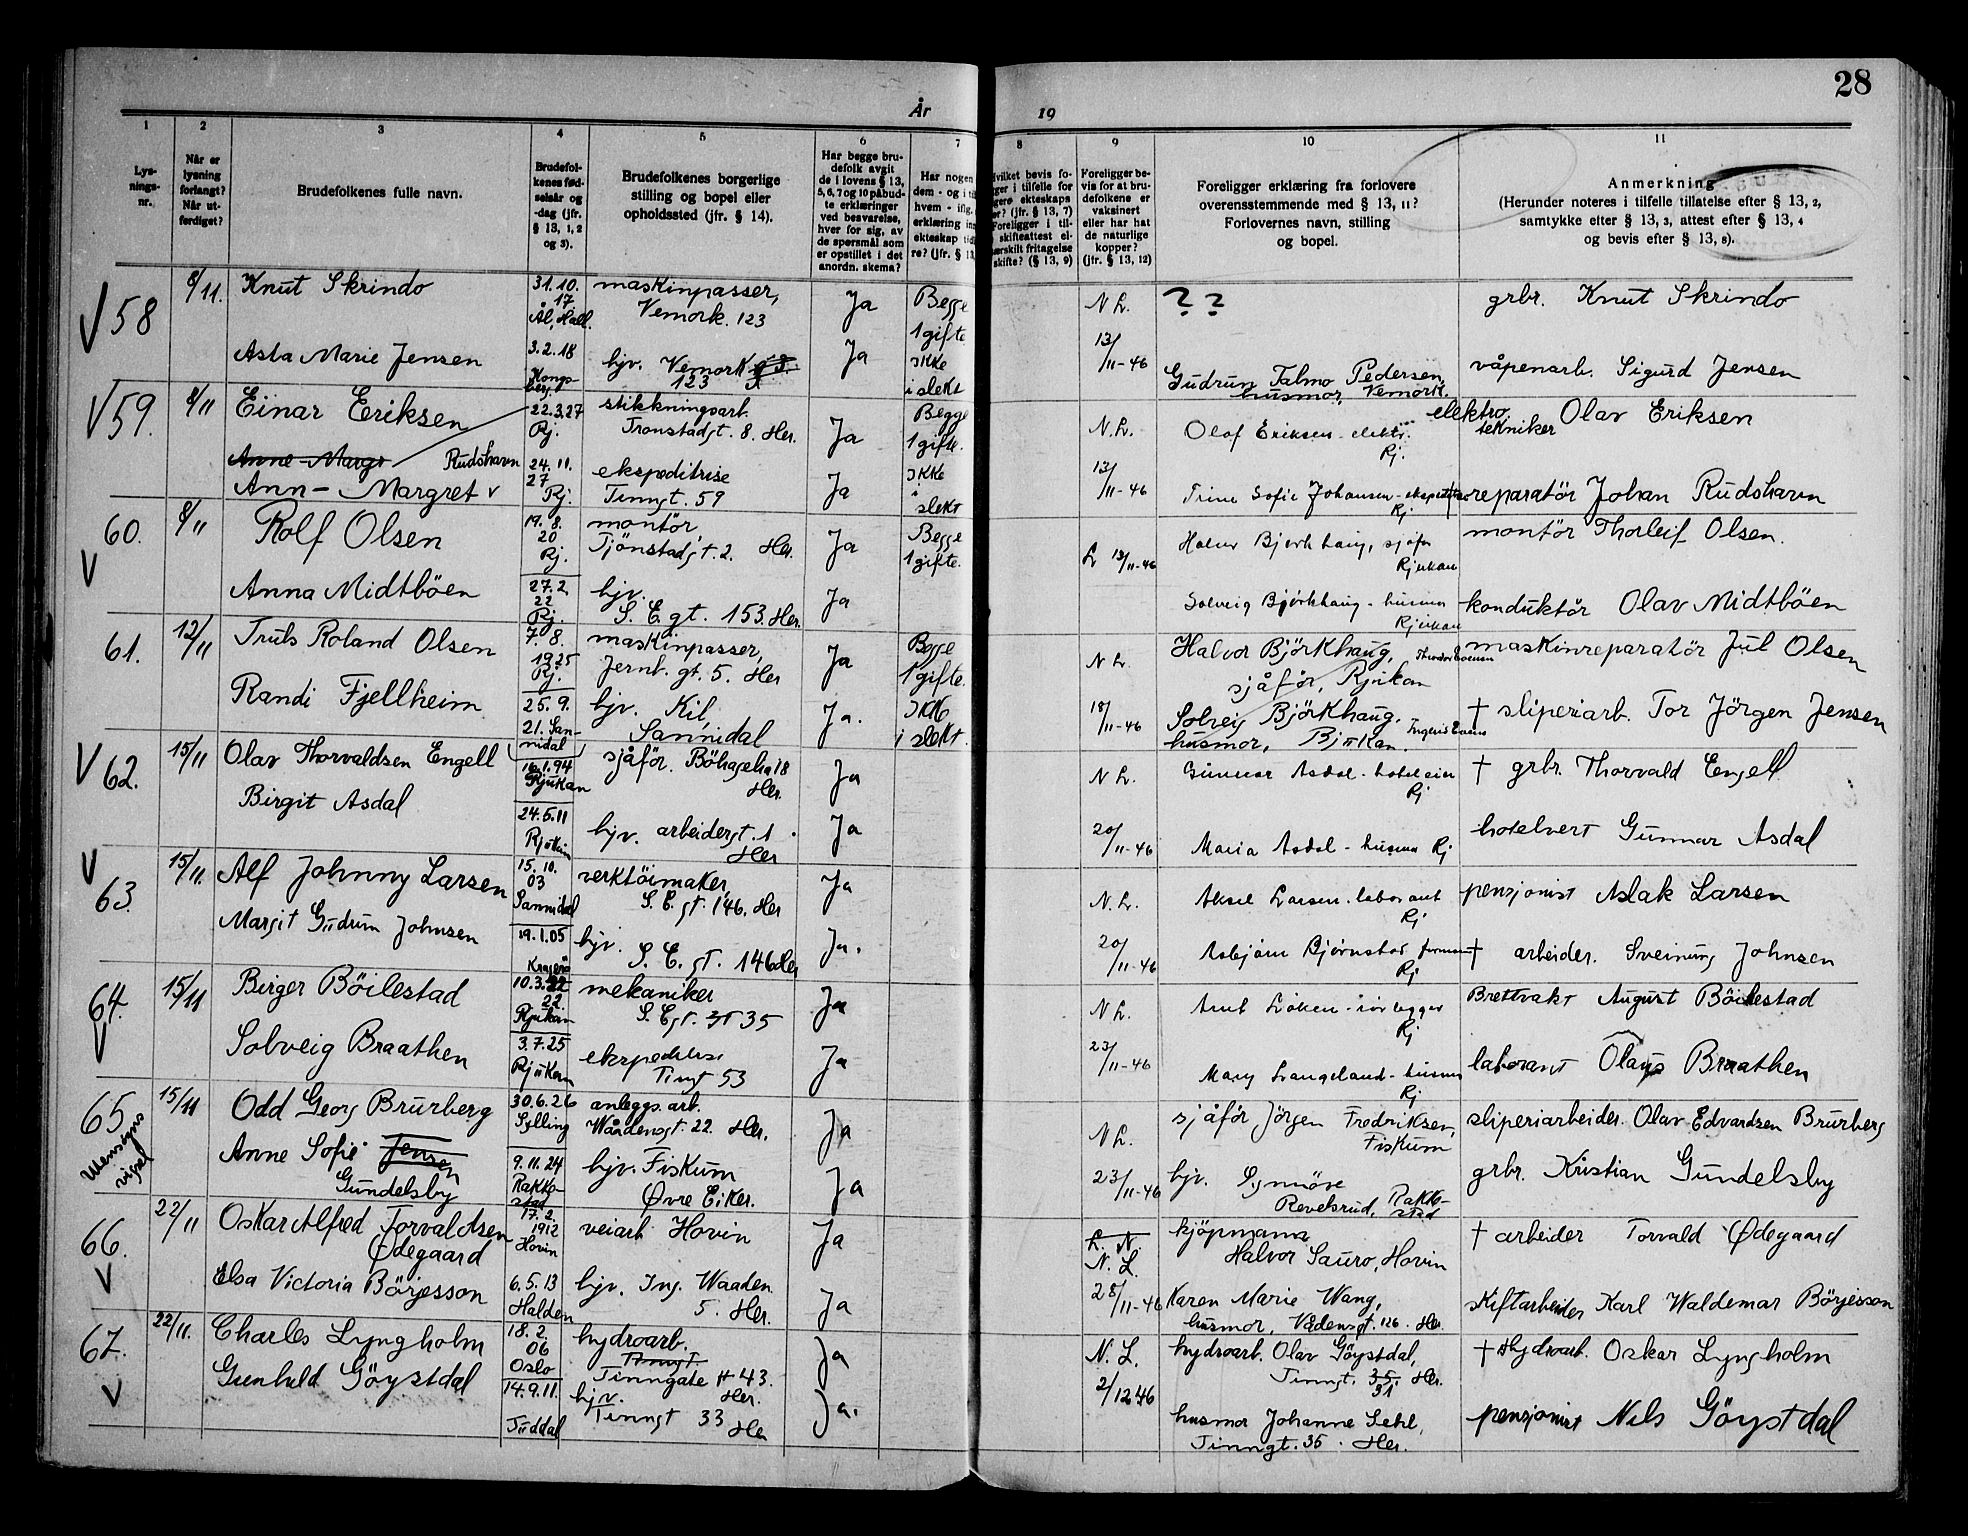 28
År 19
1 2 3 4 5 6 7 8 9 10 11
Lys-
nings-
nr.
Når er
lysning
forlangt?
Når ut-
ferdiget?
Brudefolkenes fulle navn.
Brudefol-
kenes fød-
selsår og
-dag (jfr.
§ 13, 1, 2
og 3).
Brudefolkenes borgerlige
stilling og bopel eller
opholdssted (jfr. § 14).
Har begge bru-
defolk avgit
de i lovens § 13,
5, 6, 7 og 10 påbud-
te erklæringer
ved besvarelse,
hver for sig, av
de spørsmål som
er opstillet i det
anordn. skema?
Har nogen
dem - og i til
hvem - ifig.
erklæring in
ekteskap tid
re? (jfr. § 13
Hvilket bevis fo-
ger i tilfelle for
gere ekteskaps
er? (jfr. § 13, 7)
Foreligger i til-
skifteattest el-
særskilt fritagelse
skifte? (§ 13, 9)
Foreligger be-
vis for at bru-
defolkene er
vaksinert
eller har hat
de naturlige
kopper?
(jfr. § 13, 12)
Foreligger erklæring fra forlovere
overensstemmende med § 13, 11?
Forlovernes navn, stilling
og bopel.
Anmerkning
(Herunder noteres i tilfelle tillatelse efter § 13, 2,
samtykke etter § 13, 3, attest efter § 13, 4
og bevis efter § 13, 8).
V 58 8/11. Knut Skrindo 31.10.17 Ål, Hall. maskinpasser, Vemork. 123 Ja Begge 1 gifte N L. ? ? grbr. Knut Skrindo
Asta Marie Jensen 3.2.18 Kongs-berg hjv. Vemork 123 Ja ikke i slekt 13/11-46 Gudrun Talmo Pedersen, husmor, Vemork. våpenarb. Sigurd Jensen
V 59. 8/11 Einar Eriksen 22.3.27 Rj. stikkningsarb. Tronstadgt. 8. Her. Ja Begge 1 gifte. N.L. Olaf Eriksen - elektr. Rj. elektro tekniker Olav Eriksen
Anne-Margr Rudshavn
Ann-Margret v 24.11.27 Rj. ekspeditrise Tinngt. 59 Ja ikke i slekt 13/11-46 Trine Sofie Johansen - Rj † reparatör Johan Rudshavn
60. V 8/11 Rolf Olsen 19.8.20 Rj. montör, Tjönstadgt. 2. Her. Ja Begge 1 gifte. L 13/11-46 Halvor Bjørkhaug, sjåfør Rjukan montör Thorleif Olsen.
Anna Midtböen 27.2.22 Rj. hjv. S. E. gt. 153. Her. Ja Solveig Bjørkhaug - husmor Rjukan konduktör Olav Midtböen
61. 12/11 Truls Roland Olsen 7.8.1925 Rj. maskinpasser, Jernb. gt. 5. Her Ja Begge 1 gifte. N L. Halvor Björkhaug, sjåför, Rjukan maskinreparatör Jul Olsen
Randi Fjellheim 25.9.21. San-nidal hjv. Kil, Sannidal Ja. ikke i slekt. 18/11-46 Solveig Björkhaug. husmor, Rjukan. † sliperiarb. Tor Jörgen Jensen
V 62. 15/11 Olav Thorvaldsen Engell 16.1.94 Rjukan sjåför. Böhagelia 18 Her. Ja N L. Gunnar Asdal - hoteleier Rj † grbr. Thorvald Engell
Birgit Asdal 24.5.11 Rjukan hjv. arbeidergt. 1. Her Ja 20/11-46 Maria Asdal - husmor Rj hotelvert Gunnar Asdal
V 63. 15/11. Alf Johnny Larsen 15.10.03 Sannidal verktöimaker, S. E. gt. 146. Her Ja N.L. Aksel Larsen - laborant Rj pensjonist Aslak Larsen
Margit Gudrun Johnsen 19.1.05 Kragerö hjv. S. E. gt. 146 Her Ja. 20/11-46 Asbjørn Bjørnstad formann Rj † arbeider. Sveinung Johnsen
64. V 15/11 Birger Böilestad 10.3.22 22. Rjukan mekaniker S. E gt. 35 Ja N L. Løken - rørlegger Rj Brettvakt August Böilestad
Solveig Braathen 3.7.25 Rjukan ekspeditrise Tingt 53 Ja 23/11-46 Mary Langeland - husmor Rj laborant Olaus Braathen
65 Utensogns vigsel 15/11 Odd Georg Brurberg 30.6.26 Sylling anleggs. arb. Waadensgt. 22. Her. Ja N L. sjåför Jörgen Fredriksen, Fiskum sliperiarbeider. Olav Edvardsen Brurberg
Anne Sofie Jensen Gundelsby 9.11.24 Rakke-stad hjv. Fiskum Øvre Eiker. Ja 23/11-46 hjv. Synnöve Revelsrud, Rakke-stad grbr. Kristian Gundelsby
66. V 22/11 Oskar Alfred Torvaldsen Ødegaard 17.2.1912 Hovin veiarb Hovin Ja L. N N. L. kjöpmann Halvor Sauro, Hovin † arbeider Torvald Ødegaard
Elsa Victoria Börjesson 6.5.13 Halden hjv. Ing. Waaden 5. Her. Ja 28/11-46 Karen Marie Wang, husmor, Vådensgt. 126. Her. skiftarbeider Karl Waldemar Börjesson
67. V 22/11. Charles Lyngholm 18.2.06 Oslo hydroarb. Tinngt. Tinngate 43. Her. Ja N. L. hydroarb. Olav Göystdal, Tinngt. 35. 31 Her. † Hydroarb. Oskar Lyngholm
Gunhild Göystdal 14.9.11. Tuddal hjv. Tinngt 33 Her Ja. 2/12 46 husmor Johanne Sehl, Tinngt. 35. Her. pensjonist Nils Göystdal